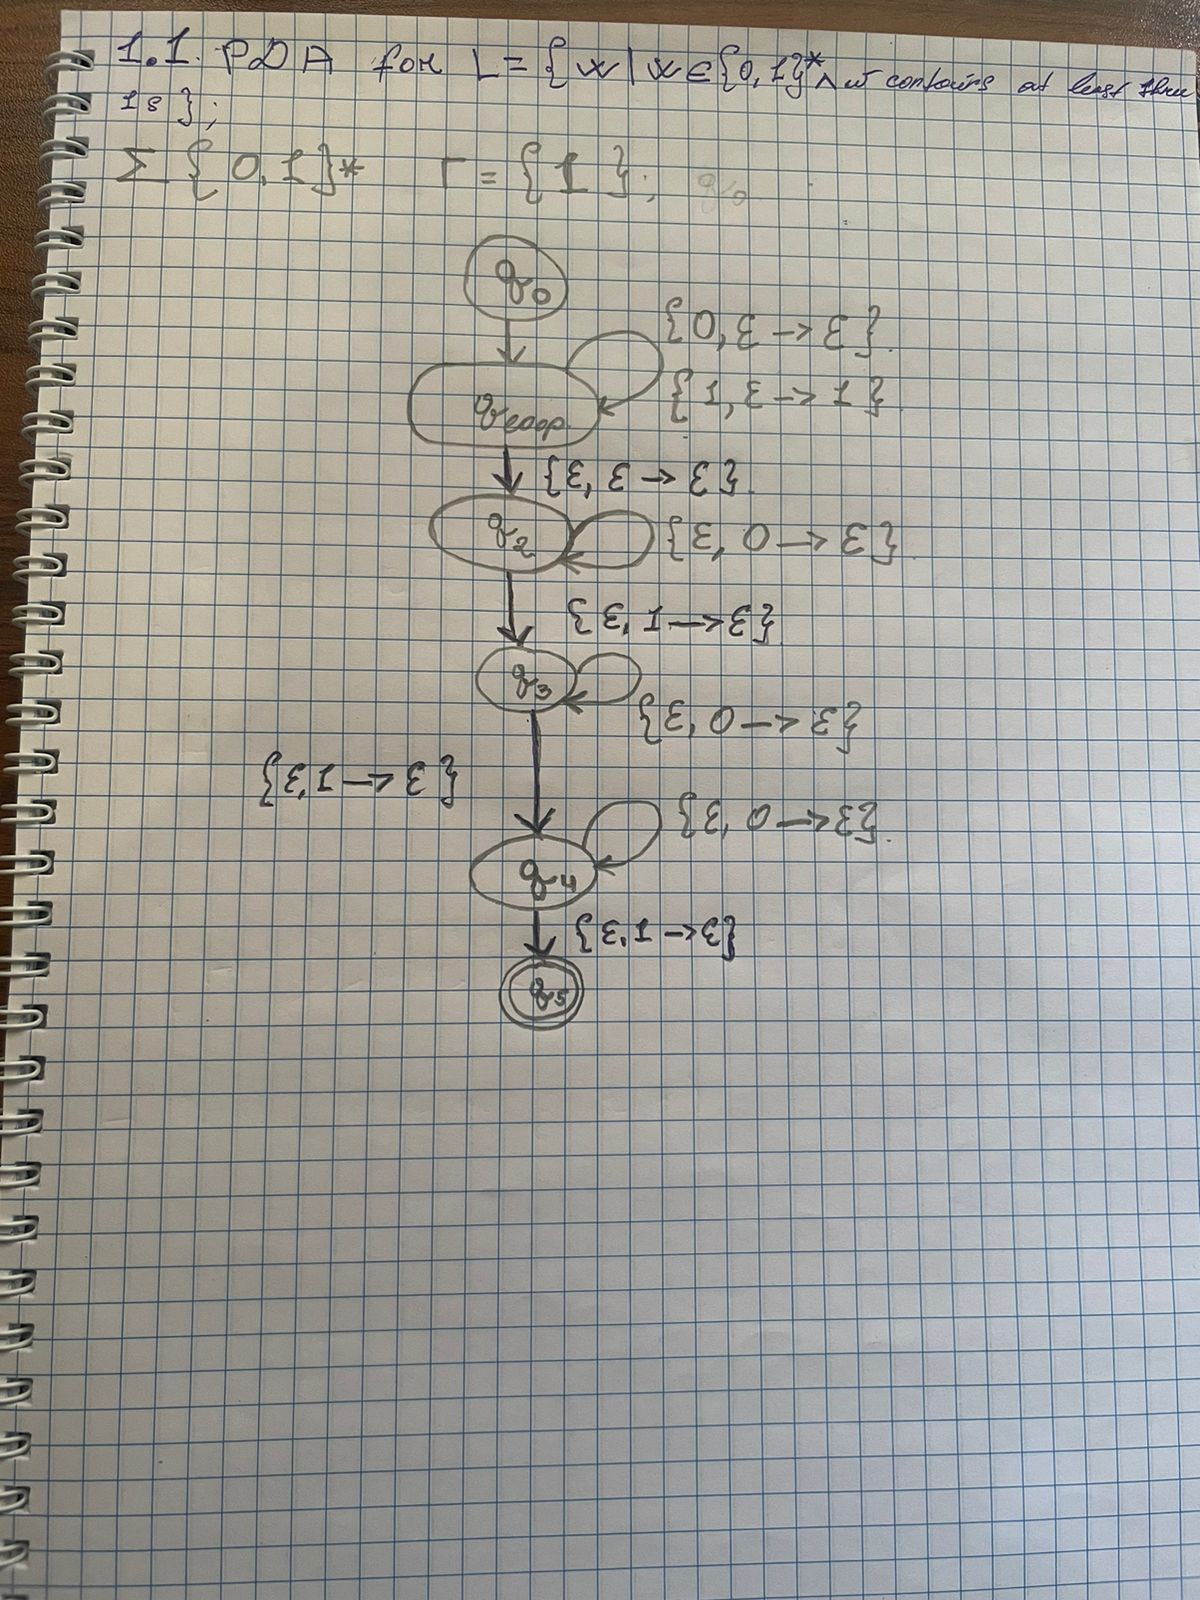 1.1. PDA for L = {w | w ∈ {0,1}* ∧ w contains at least three
1s};
Σ {0,1}* Γ = {1}; q0
q0
{0,ε → ε}.
{1,ε → 1}.
qloop
{ε,ε → ε}.
q2
{ε,0 → ε}.
{ε,1 → ε}.
q3
{ε,0 → ε}
{ε,1 → ε}
{ε,0 → ε}.
q4
{ε,1 → ε}
q5